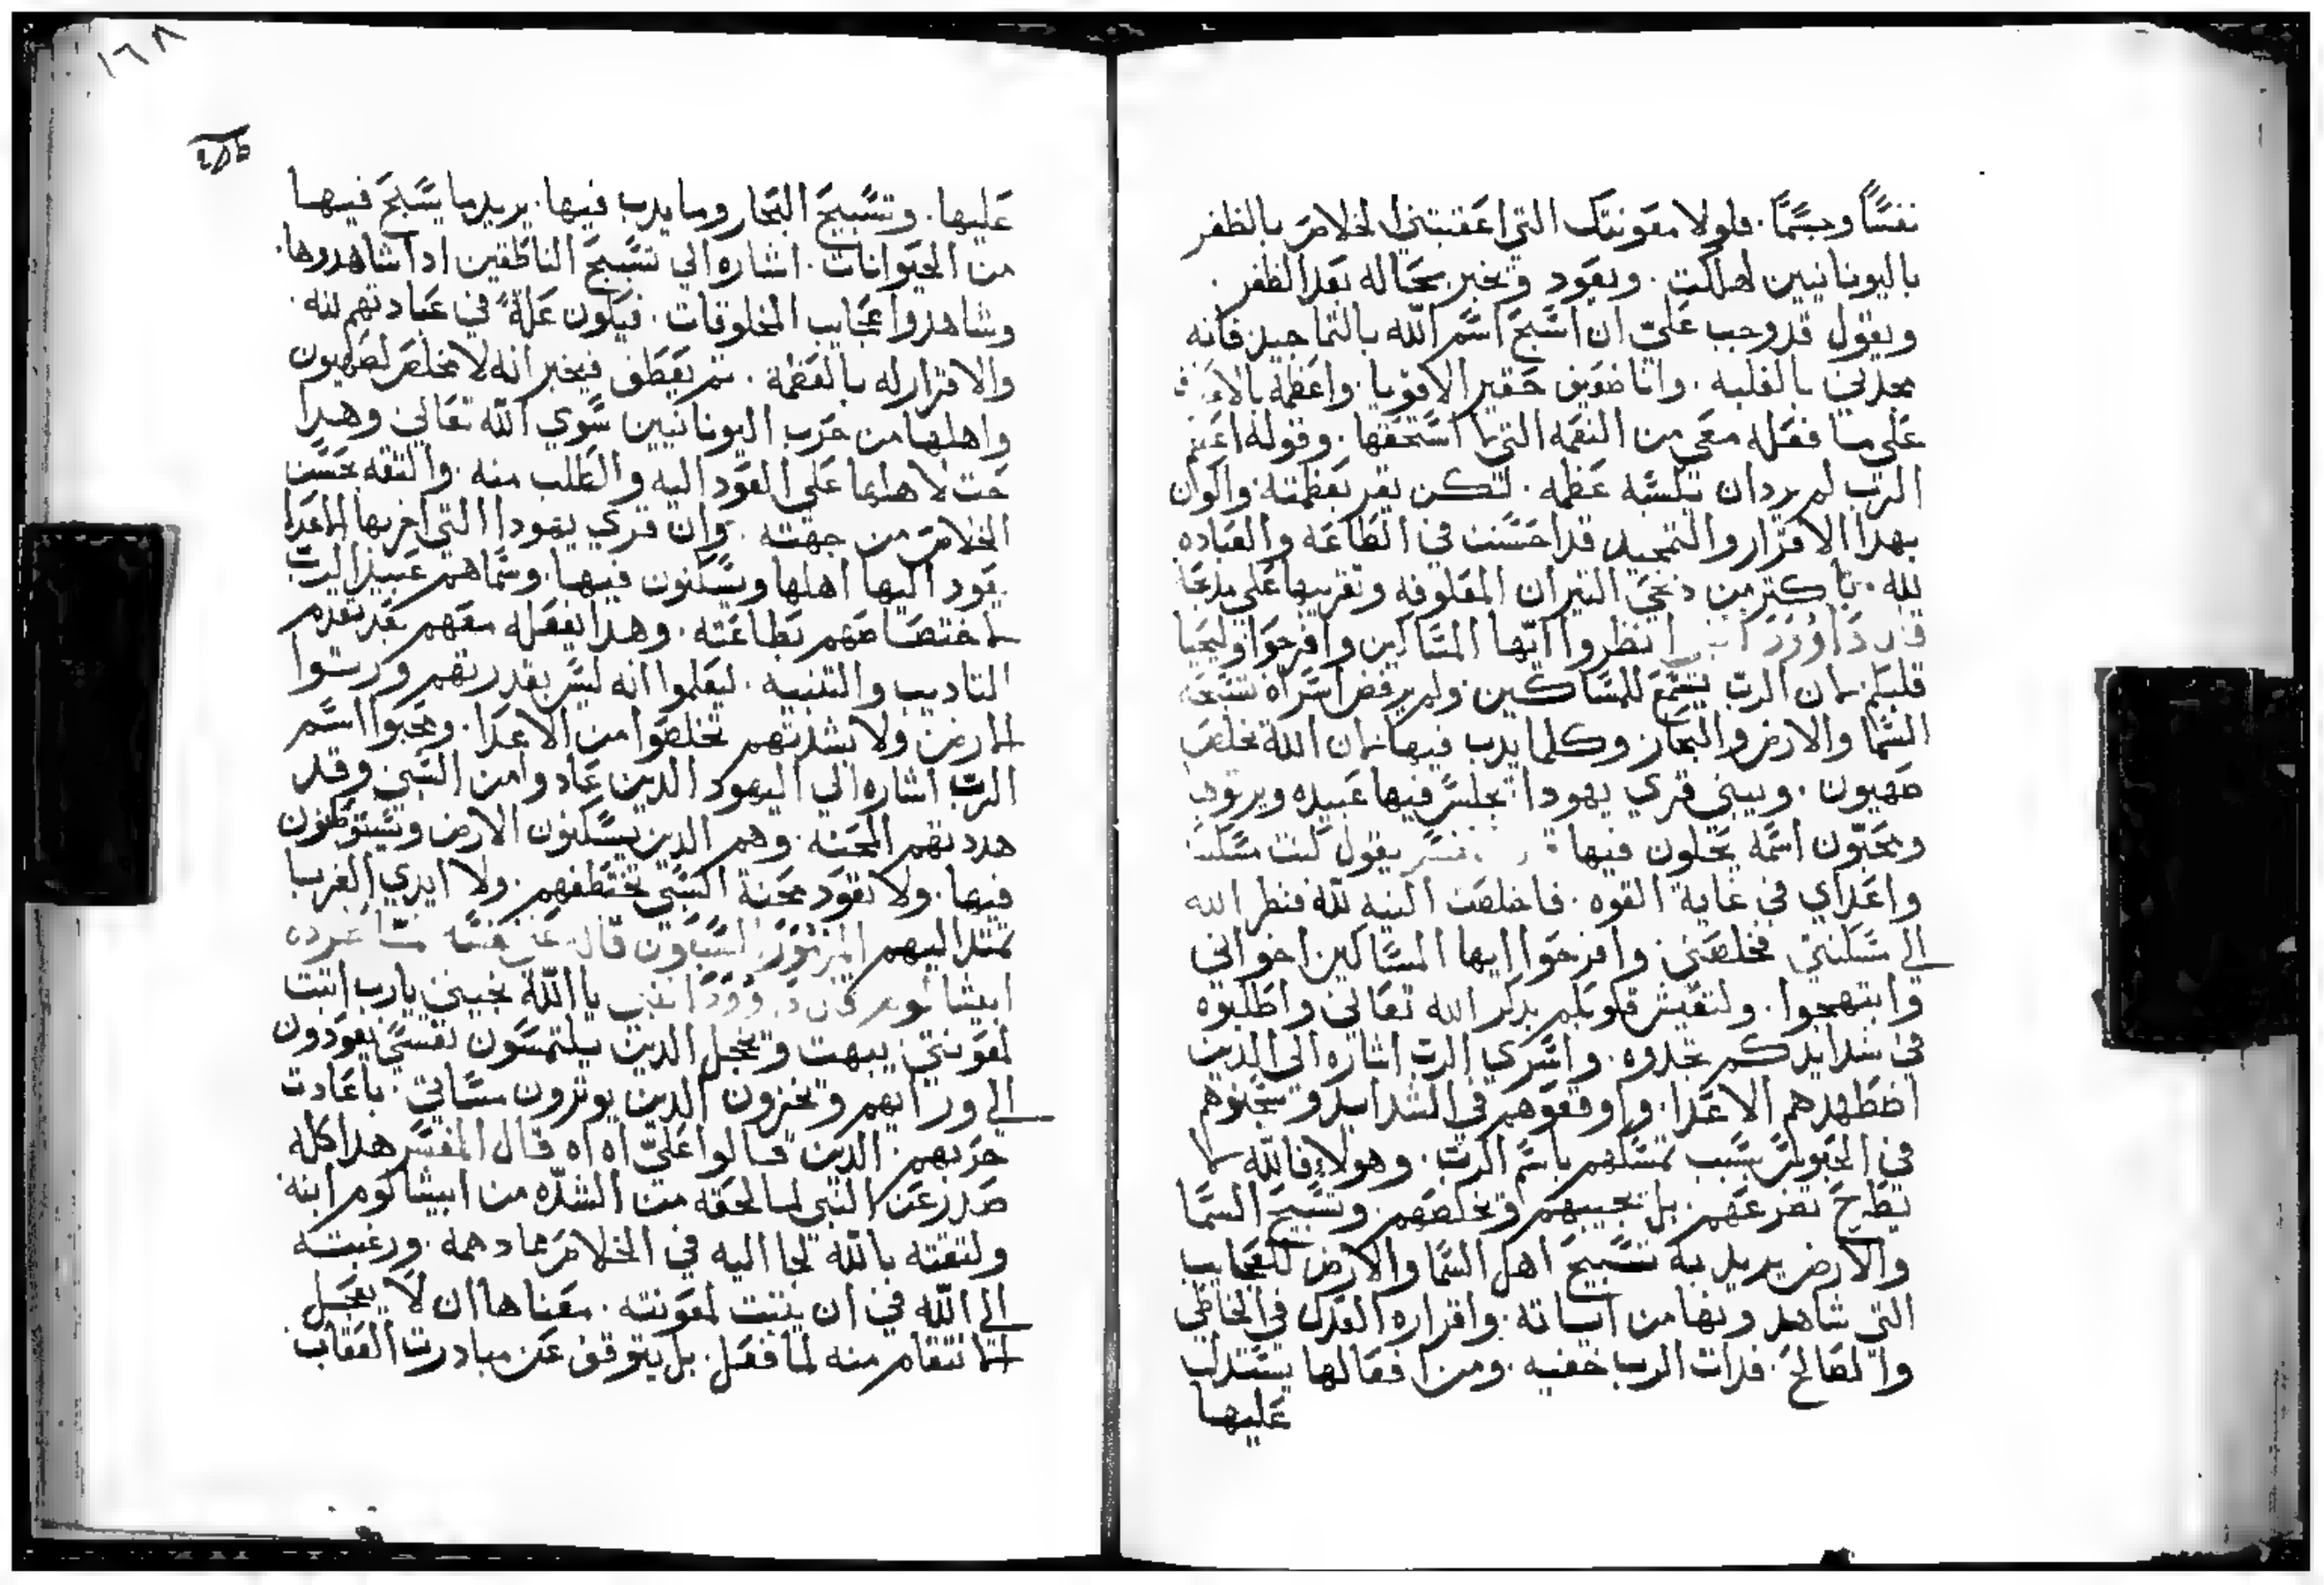 نفسًا وجسمًا. فلولا معونتك التي اعقبتني الخلاص بالظفر
باليونانيين لهلكت. ويعود ويخبر بحاله بعد الظفر.
ويقول قد وجب عليّ ان اسبح اسم الله بالتماجيد فانه
مجدني بالغلبه. وانا ضعيف حقير الاقويا. واعظمه بالاعتراف
علي ما فعله معي من النعمه التي ما استحقها. وقوله اعظم
الرب لم يرد ان تكسبه عظمه. لكن تقر بعظمته. واكون
بهدا الاقرار والتمجيد قد احسنت في الطاعه والعباده
لله. باكتر من دبحي التيران المعلوفه وتقريبها علي مدبحا
قال داوود النبي انظروا ايها المساكين وافرحوا وليحيا
قلبكم. فان الرب يسمع للمساكين ولم يرفض اسراه تسبحه
السما والارض والبحار وكلما يدب فيها. فان الله يخلص
صهيون. ويبني قري يهودا. يجلس فيها عبيده ويرتوها
ومحبّون اسمه يحلون فيها يقول كنت مسكينا
واعداي في غاية القوه. فاخلصت النيه لله فنظر الله
الي مسكنتي فخلصني وافرحوا ايها المساكين اخواني
وابتهجوا. ولتعيش قلوبكم بدكر الله تعالي واطلبوه
في شدايدكم تجدوه. واسري الرب اشاره الي الدين
اضطهدهم الاعدا. واوقعوهم في الشدايد وسجنوهم
في الحبوس بسبب تمسكهم باسم الرب. وهولاء فالله لا
يطرح تضرعهم. بل يجيبهم ويخلصهم. وتسبيح السما
والارض يريد به تسبيح اهل السما والارض للعجايب
التي شاهدونها من اساته. واقراره العدل في الخاطي
والصالح. فدات الرب خفيه. ومن افعالها يستدل
عليها
١٦٨
عليها. وتسبيح البحار وما يدب فيها. يريد ما يسبح فيها
من الحيوانات. اشاره الي تسبيح الناطقين ادا شاهدوها.
وشاهدوا عجايب المخلوقات. فيكون علةً في عبادتهم لله.
والاقرار له بالعظمه. تم يعطف فيخبر انه لا مخلص لصهيون
واهلها من حرب اليونانيين سوي الله تعالي وهدا
حت لاهلها علي العود اليه والطلب منه. والتقه بحسن
الخلاص من جهته. وان قري يهودا التي اخربها الاعدا
يعود اليها اهلها ويسكنون فيها. وسماهم عبيد الرب
لاختصاصهم بطاعته. وهدا يفعله معهم بعد تقدم
التاديب والتنبيه. ليعلموا انه ليس بقدرتهم ورتوا
الارض ولا بشدتهم تخلصوا من الاعدا. ومحبوا اسم
الرب اشاره الي اليهود الدين عادوا من السبي وقد
هددتهم المحنه. وهم الدين يسكنون الارض ويستوطنون
فيها. ولا تعود محنة السبي تختطفهم. ولا ايدي الغربا
تمتد اليهم المزمور السبعون قاله
ابيشالوم قال داوود النبي يا الله نجيني يارب اتبت
لمعونتي. يبهت ويخجل الدين يلتمسون نفسي يعودون
الي ورايهم ويخزون الدين يوترون مساتي. باعادت
حزبهم. الدين قالوا عليّ اه اه قال المفسر هدا كله
صدر عن النبي لما لحقه من الشدّه من ابيشالوم ابنه
ولتقته بالله لجا اليه في الخلاص مما دهمه. ورغبته
الي الله في ان يتبت لمعونته. معناها ان لا يعجل
الانتقام منه لما فعل. بل يتوقف عن مبادرت العقاب